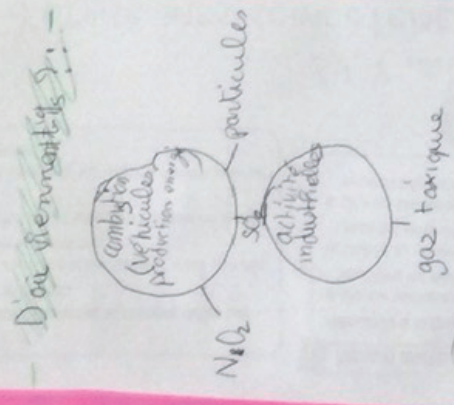 - D'où viennent-ils ? : -
combustion
(véhicules
production energie
N2O2
particules
SO2
activité
industrielles
gaz toxique